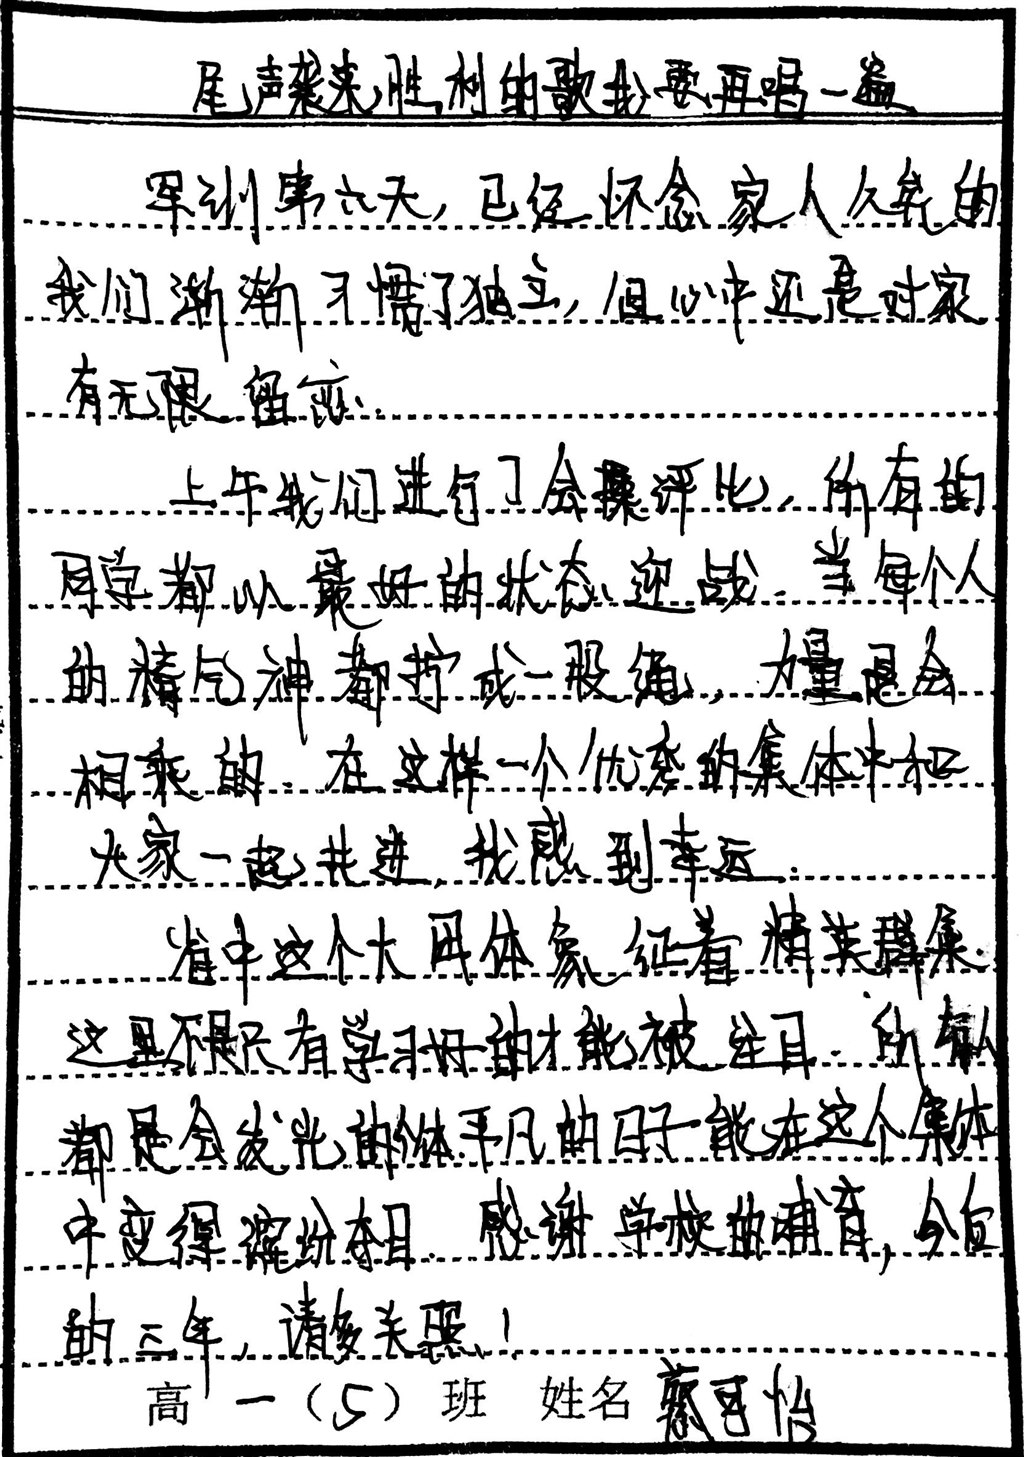 尾声袭来胜利的歌我要再唱一遍
军训第六天，已经怀念家人久矣的
我们渐渐习惯了独立，但心中还是对家
有无限留恋.
上午我们进行了会操评比，所有的
同学都以最好的状态迎战.当每个人
的精气神都拧成一股绳，力量是会
相乘的.在这样一个优秀的集体中和
大家一起共进，我感到幸运.
省中这个大团体象征着精英群集.
这里不是只有学习好的才能被注目.所有人
都是会发光的个体.平凡的日子能在这个集体
中变得缤纷夺目.感谢学校的哺育，今后
的三年，请多关照！
高一（5）班 姓名 蔡可怡